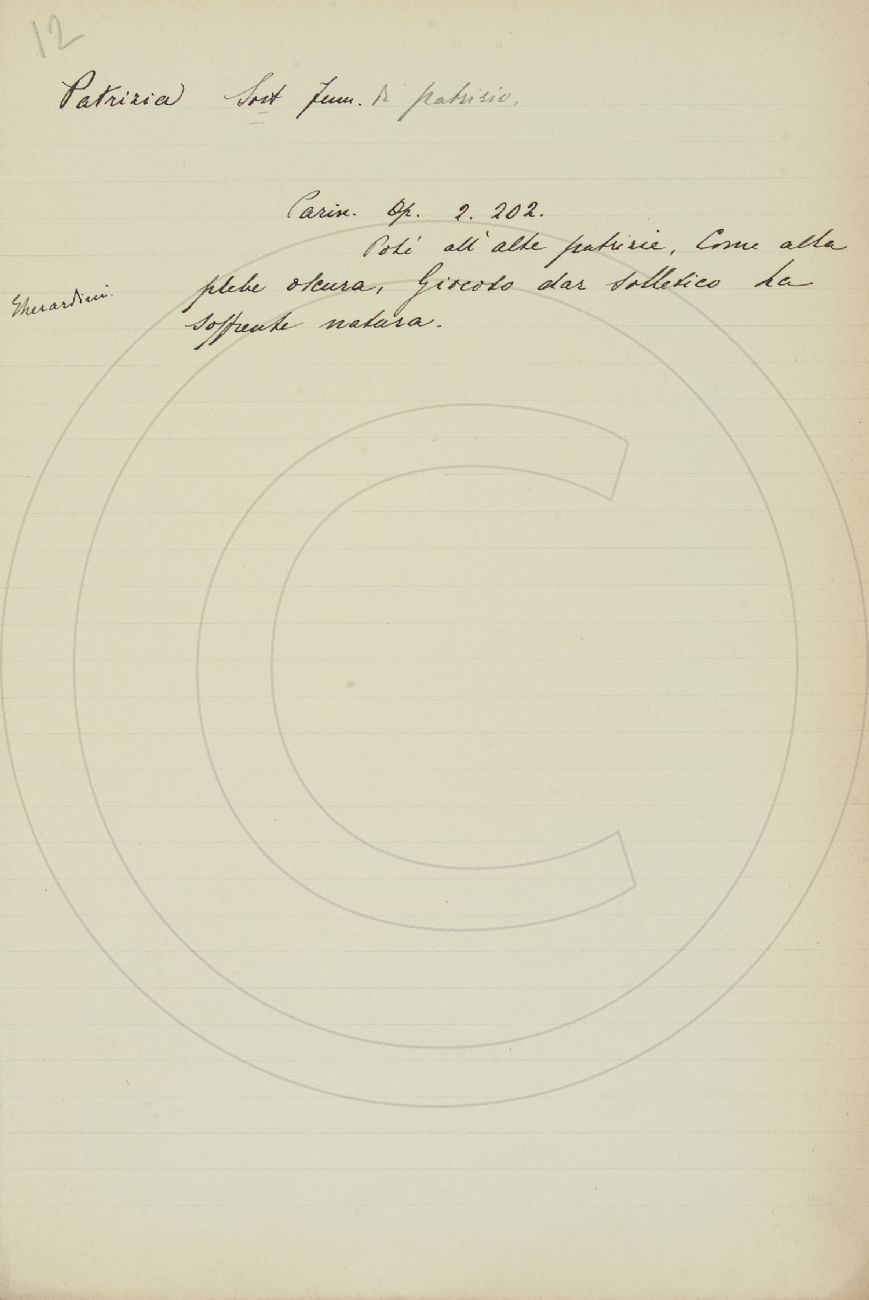 12
Patrizia Sost fem. di patrizio.
Parin. Op. 2. 202.
Poté all'alte patrizie, Come alla
plebe oscura, Giocoso dar solletico La
Gherardini.
soffrente natura.